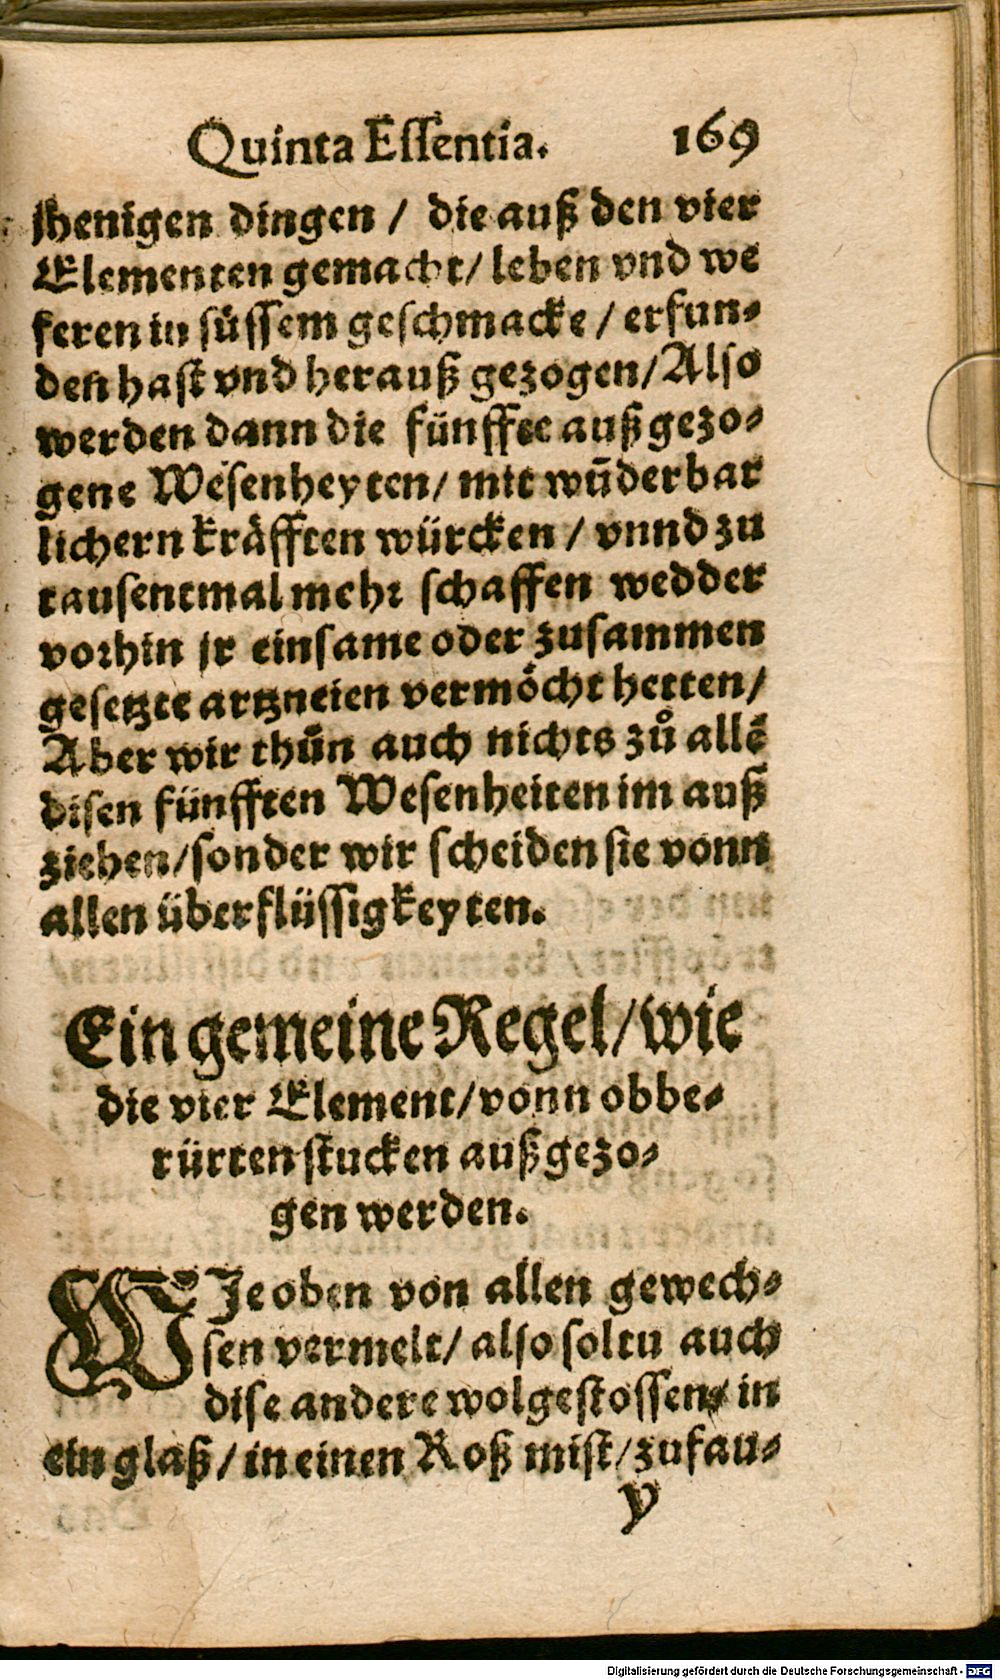 Quinta Essentia. 169
jhenigen dingen / die auß den vier
Elementen gemacht / leben vnd we
feren in süssem geschmacke / erfun⸗
den hast vnd herauß gezogen / Also
werden dann die fünffte auß gezo⸗
gene Wesenheyten / mit wūderbar
lichern kräfften würcken / vnnd zu
tausentmal mehr schaffen wedder
vorhin jr einsame oder zusammen
gesetzte artzneien vermöcht hetten /
Aber wir thůn auch nichts zů allē
disen fünfften Wesenheiten im auß
ziehen / sonder wir scheiden sie vonn
allen überflüssigkeyten.
Ein gemeine Regel / wie
die vier Element / vonn obbe⸗
rürten stucken auß gezo⸗
gen werden.
WJe oben von allen gewech⸗
sen vermelt / also soltu auch
dise andere wolgestossen / in
ein glaß / in einen Roß mist / zufau⸗
y
Digitalisierung gefördert durch die Deutsche Forschungsgemeinschaft - DFG